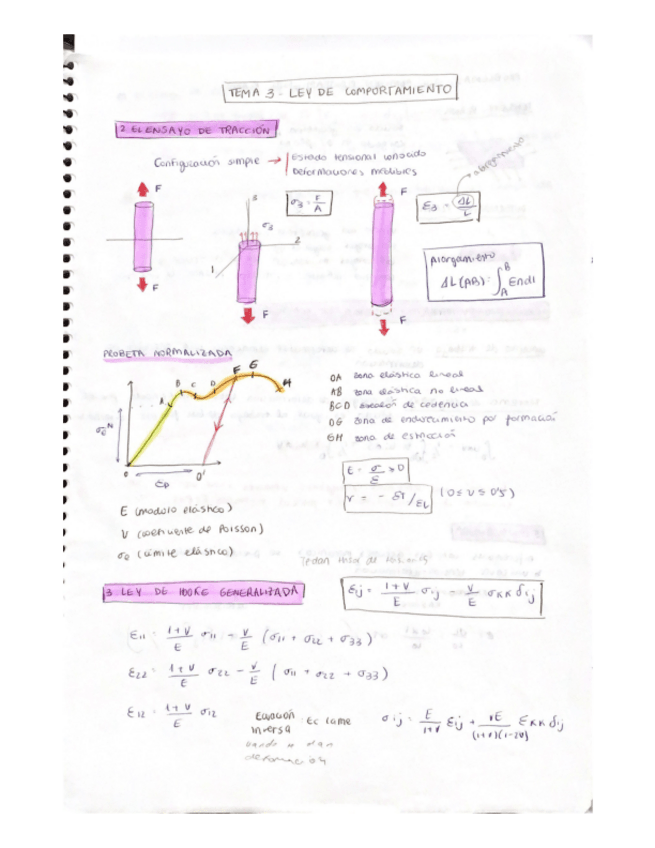 TEMA 3. LEY DE COMPORTAMIENTO
2 EL ENSAYO DE TRACCIÓN
Configuración simple → Estado tensional conocido
Deformaciones medibles
alargamiento
F
F
3
σ3
2
1
F
σ3 = F/A
F
F
ε3 = ΔL/L
Alargamiento
ΔL(AB) = ∫_A^B εndl
PROBETA NORMALIZADA
A
B
C
D
F
G
H
σ0^N
O
εp
O'
OA zona elástica lineal
AB zona elástica no lineal
BCD escalón de cedencia
DG zona de endurecimiento por formación
GH zona de estricción
E = σ/ε > 0
ν = - εT/εL (0 ≤ ν ≤ 0'5)
E (modulo elástico)
ν (coeficiente de Poisson)
σ0 (límite elástico)
3 LEY DE HOOKE GENERALIZADA
εij = (1+ν)/E σij - ν/E σKK δij
ε11 = (1+ν)/E σ11 - ν/E (σ11 + σ22 + σ33)
ε22 = (1+ν)/E σ22 - ν/E (σ11 + σ22 + σ33)
ε12 = (1+ν)/E σ12
Ecuación inversa : Ec Lame
deformación
σij = E/(1+ν) εij + νE/((1+ν)(1-2ν)) εKK δij